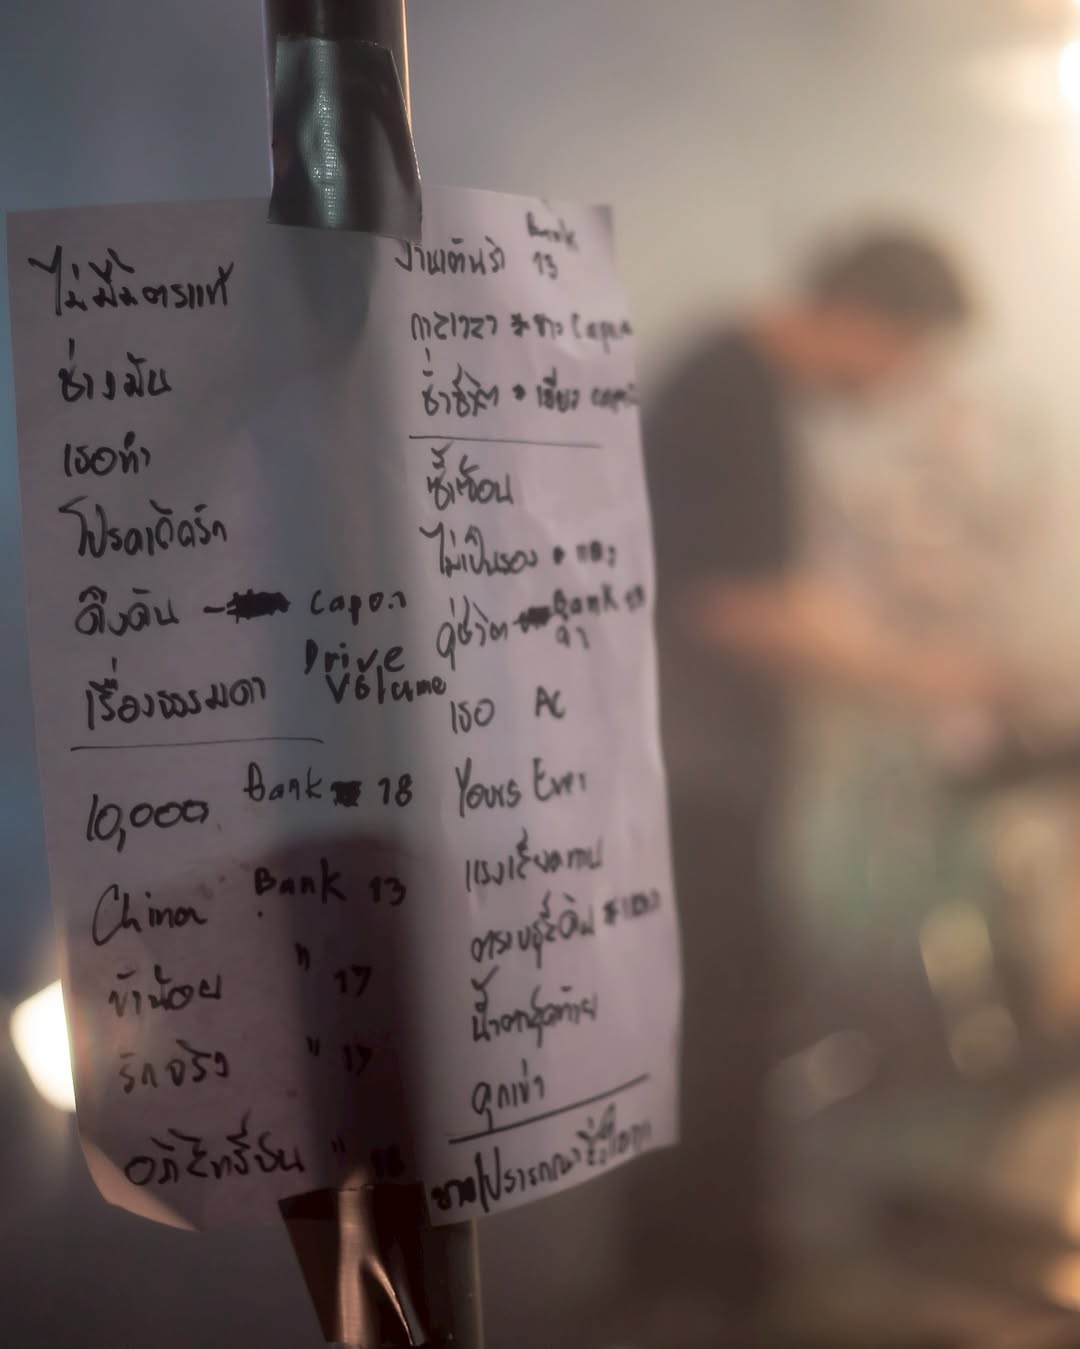 ไม่มีมิตรแท้
ช่างมัน
เธอทำ
โปรดเถิดรัก
ดึงดัน - Capo.1
Drive
Volume
เรื่องธรรมดา
10,000 Bank 18
China Bank 13
ข้าน้อย " 17
รักจริง " 17
อภิสิทธิ์ชน "
งานเต้นรำ Bank 13
กาลเวลา * Capo
ชั่วชีวิต
ซ้ำซ้อน
ไม่เป็นรอง
คู่ชีวิต Bank
เธอ AC
Yours Ever
แรงเสียดทาน
ตราบธุลีดิน
น้ำตาสุดท้าย
คุกเข่า